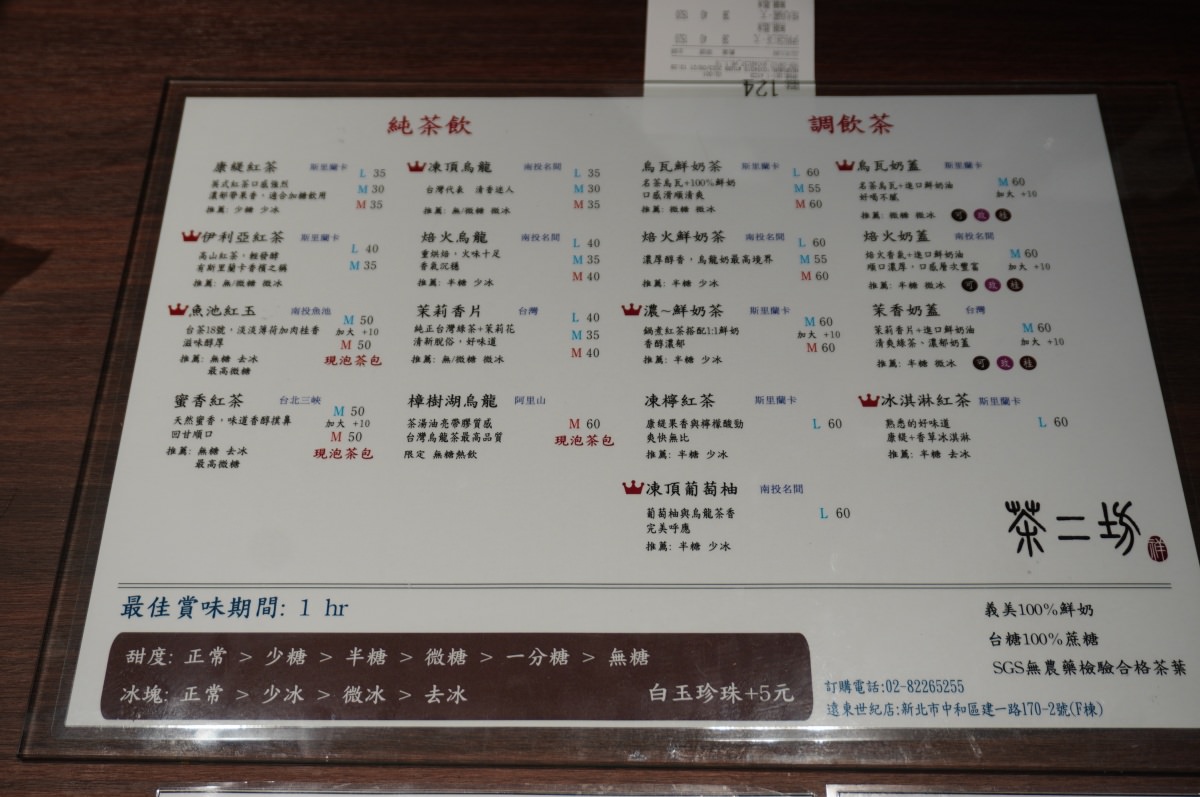 124
純茶飲
康緹紅茶 斯里蘭卡 L 35
英式紅茶口感強烈 M 30
濃郁帶果香，適合加糖飲用
推薦: 少糖 少冰 M 35
伊利亞紅茶 斯里蘭卡 L 40
高山紅茶，輕發酵
有斯里蘭卡香檳之稱 M 35
推薦: 無/微糖 微冰
魚池紅玉 南投魚池 M 50
台茶18號，淡淡薄荷加肉桂香 加大 +10
滋味醇厚 M 50
推薦: 無糖 去冰 現泡茶包
最高微糖
蜜香紅茶 台北三峽 M 50
天然蜜香，味道香醇撲鼻 加大 +10
回甘順口 M 50
推薦: 無糖 去冰 現泡茶包
最高微糖
凍頂烏龍 南投名間 L 35
台灣代表 清香迷人 M 30
推薦: 無/微糖 微冰 M 35
焙火烏龍 南投名間 L 40
重烘焙，火味十足 M 35
香氣沉穩
推薦: 半糖 少冰 M 40
茉莉香片 台灣 L 40
純正台灣綠茶+茉莉花 M 35
清新脫俗，好味道
推薦: 無/微糖 微冰 M 40
樟樹湖烏龍 阿里山
茶湯油亮帶膠質感 M 60
台灣烏龍茶最高品質 現泡茶包
限定 無糖熱飲
調飲茶
烏瓦鮮奶茶 斯里蘭卡 L 60
名茶烏瓦+100%鮮奶 M 55
口感滑順清爽
推薦: 微糖 微冰 M 60
焙火鮮奶茶 南投名間 L 60
濃厚醇香，烏龍奶最高境界 M 55
推薦: 半糖 少冰 M 60
濃~鮮奶茶 斯里蘭卡 M 60
鍋煮紅茶搭配1:1鮮奶 加大 +10
香醇濃郁 M 60
推薦: 半糖 少冰
凍檸紅茶 斯里蘭卡
康緹果香與檸檬酸勁 L 60
爽快無比
推薦: 半糖 少冰
凍頂葡萄柚 南投名間
葡萄柚與烏龍茶香 L 60
完美呼應
推薦: 半糖 少冰
烏瓦奶蓋 斯里蘭卡 M 60
名茶烏瓦+進口鮮奶油 加大 +10
好喝不膩
推薦: 微糖 微冰 可 玫 桂
焙火奶蓋 南投名間
焙火香氣+進口鮮奶油 M 60
順口濃厚，口感層次豐富 加大 +10
推薦: 半糖 微冰 可 玫 桂
茉香奶蓋 台灣
茉莉香片+進口鮮奶油 M 60
清爽綠茶、濃郁奶蓋 加大 +10
推薦: 半糖 微冰 可 玫 桂
冰淇淋紅茶 斯里蘭卡
熟悉的好味道 L 60
康緹+香草冰淇淋
推薦: 半糖 去冰
茶二坊
祥
最佳賞味期間: 1 hr
甜度: 正常 > 少糖 > 半糖 > 微糖 > 一分糖 > 無糖
冰塊: 正常 > 少冰 > 微冰 > 去冰 白玉珍珠+5元
義美100%鮮奶
台糖100%蔗糖
SGS無農藥檢驗合格茶葉
訂購電話:02-82265255
遠東世紀店:新北市中和區建一路170-2號(F棟)